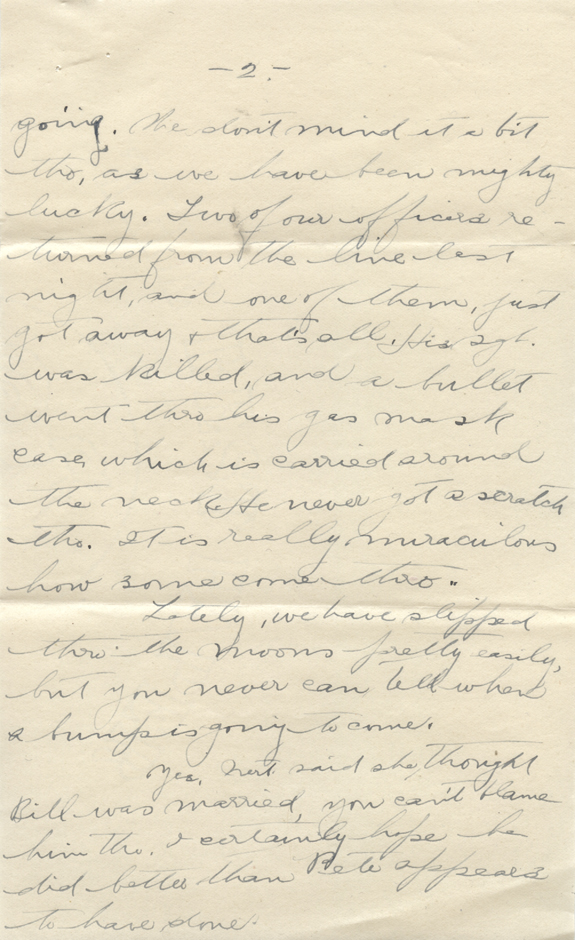 -2-
going. We don't mind it a bit
tho, as we have been mighty
lucky. Two of our officers re-
turned from the line last
night, and one of them, just
got away & that's all. His sgt.
was killed, and a bullet
went thro his gas mask
case, which is carried around
the neck. He never got a scratch
tho. It is really miraculous
how some come thro.
Lately, we have slipped
thro the moons pretty easily,
but you never can tell when
a bump is going to come.
Yes, said she thought
Bill was married, you can't blame
him tho. I certainly hope he
did better than Pete appears
to have done.